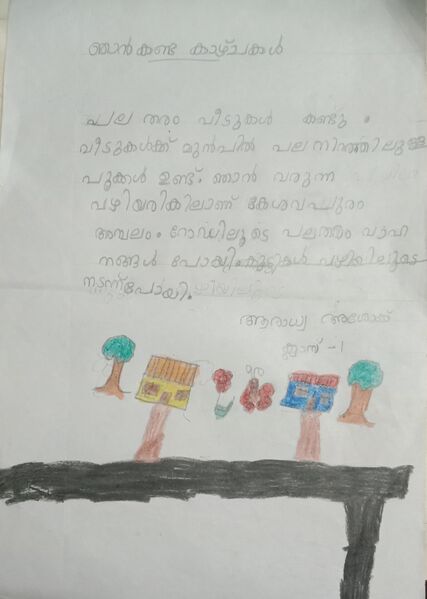 ഞാൻ കണ്ട കാഴ്ചകൾ
പല തരം വീടുകൾ കണ്ടു.
വീടുകൾക്ക് മുൻപിൽ പല നിറത്തിലുള്ള
പൂക്കൾ ഉണ്ട്. ഞാൻ വരുന്ന
വഴിയരികിലാണ് കേശവപുരം
അമ്പലം. റോഡിലൂടെ പലതരം വാഹ
നങ്ങൾ പോയി. കുട്ടികൾ വഴിയിലൂടെ
നടന്ന് പോയി.
ആരാധ്യ അശോക്
ക്ലാസ് - 1